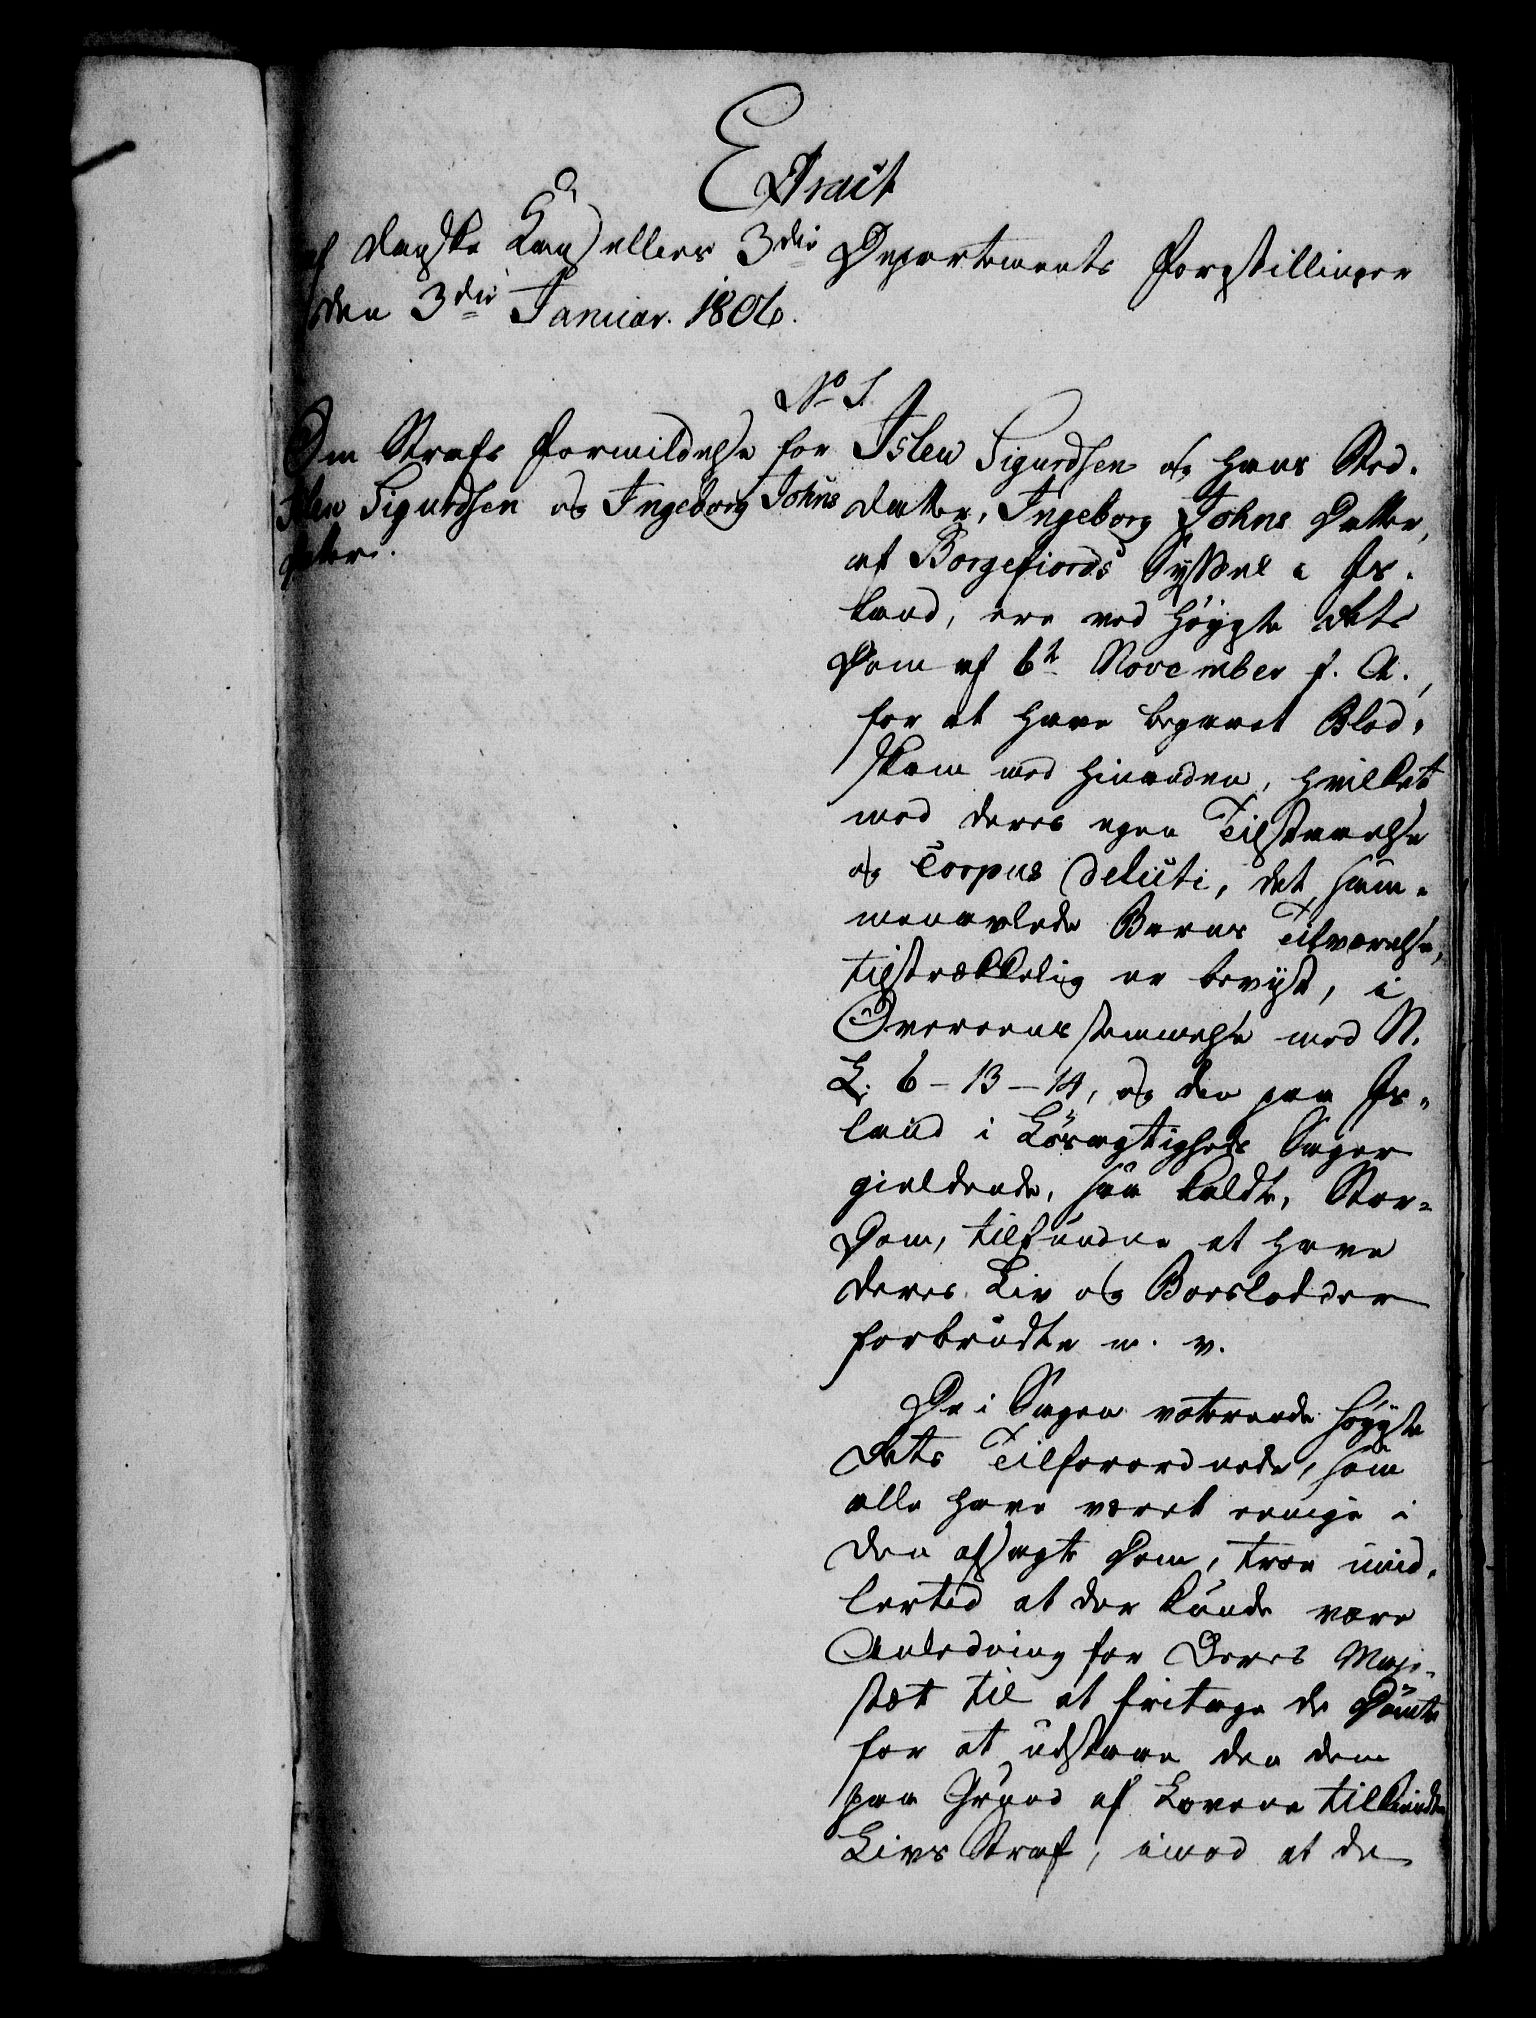 Extract
af danske Cancelliers 3die Departements Forestillinger
den 3die Januar. 1806.
No 1.
Om Strafs Formildelse for
Islev Sigurdsen og Ingeborg Johns
datter.
Islev Sigurdsen og hans Sted-
datter, Ingeborg Johns Datter,
af Borgefiords Syssel i Is-
land, ere ved Høyeste Rets
Dom af 6te November f. A.,
for at have begaaet Blod-
skam med hinanden, hvilket
med deres egen Tilstaaelse
og Corpus delicti, det sam-
menavlede Barns Tilværelse,
tilstrækkelig er beviist, i
Overeensstemmelse med N.
L. 6-13-14, og den paa Is-
land i Løsagtigheds Sager
gieldende, saa kaldte, Stor-
Dom, tilfundne at have
deres Liv og Boeslodder
forbrudte m. v.
De i Sagen voterende Høyeste
Rets Tilforordnede, som
alle have været eenige i
den afsagte Dom, troe imid-
lertid at der kunde være
Anledning for Deres Maje-
stæt til at fritage de Dømte
for at udstaae den dem
paa Grund af Loven tilkiendte
Livs Straf, imod at de